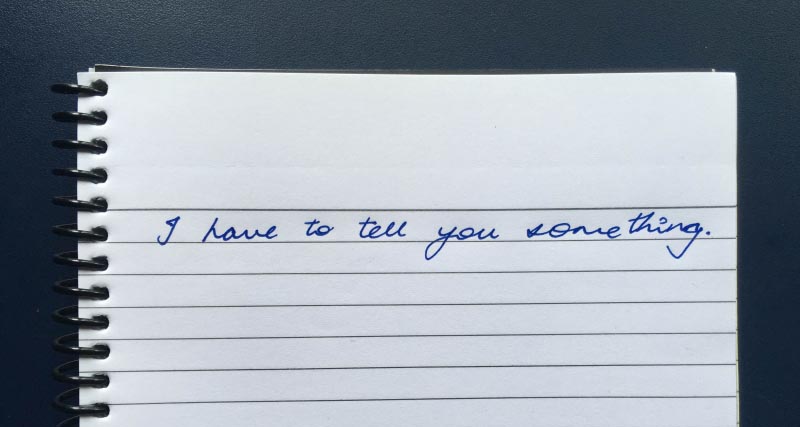 I have to tell you something.